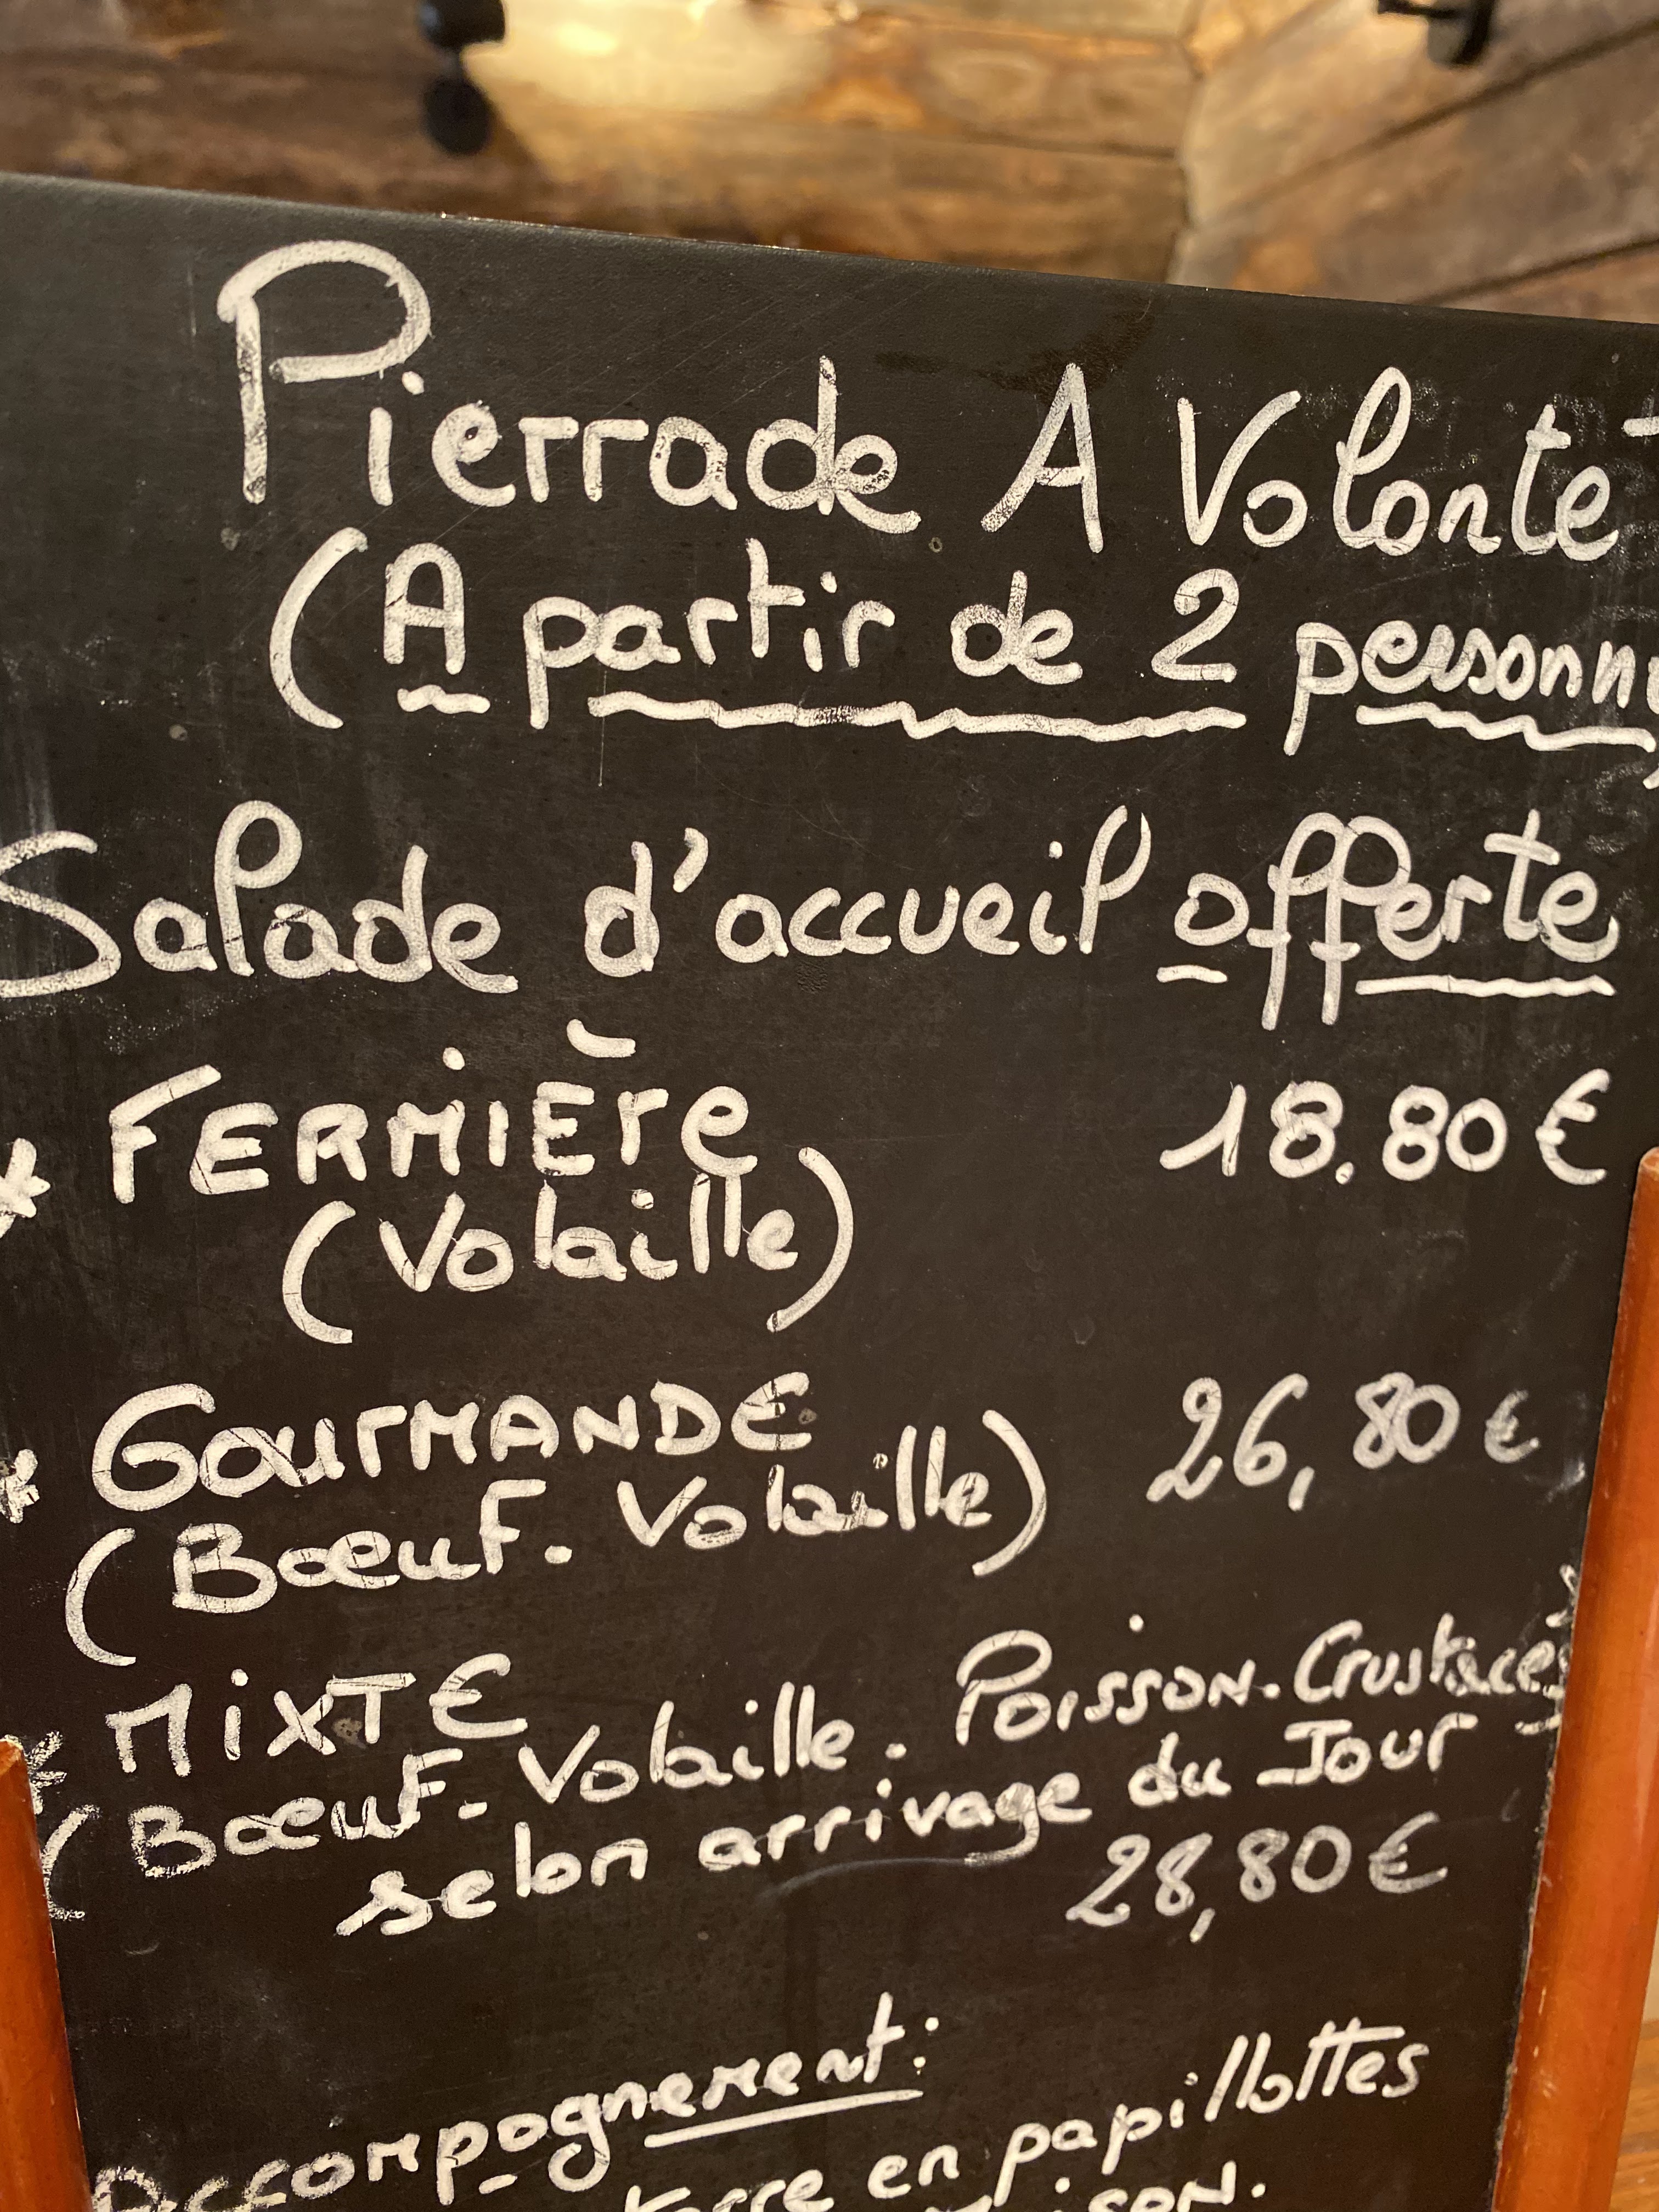 Pierrade A Volonté
(A partir de 2 personn
Salade d'accueil offerte
* FERMIÈre 18.80 €
(Volaille)
* GourMANDE 26,80 €
(BœuF. Volaille)
* MixTE
(BœuF. Volaille. Poisson. Crustacés
selon arrivage du Jour
28,80 €
Accompagnement:
terre en papillottes